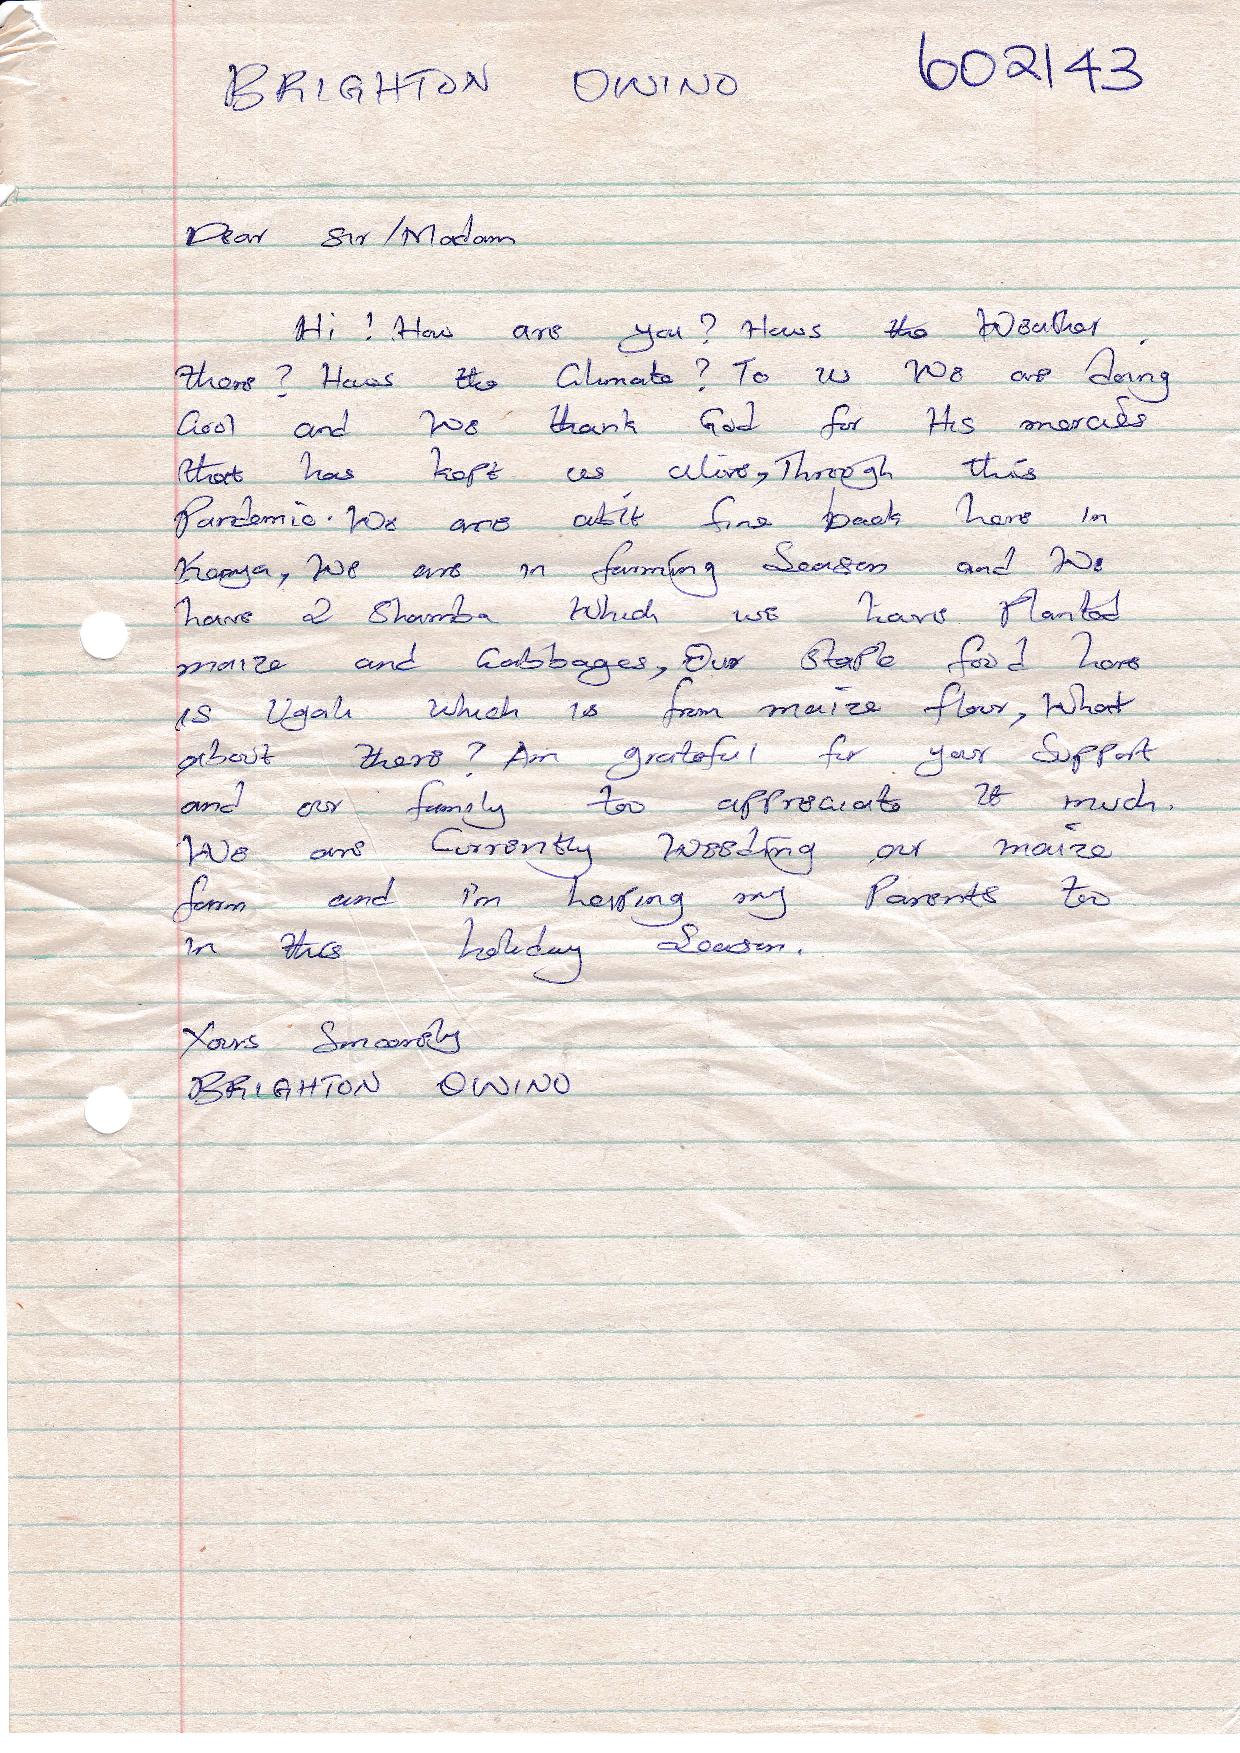 BRIGHTON OWINO 602143
Dear Sir/Madam
Hi! How are you? Hows the Weather
there? Hows the Climate? To us We are doing
Cool and We thank God for His mercies
that has kept us alive, Through this
Pandemic. We are abit fine back here in
Kenya, We are in farming Season and We
have 2 Shamba Which we have Planted
maize and Cabbages, Our Staple food here
is Ugali which is from maize flour, What
about there? Am grateful for your Support
and our family too appreciate it much.
We are Currently Weeding our maize
farm and i'm helping my Parents too
in this holiday Season.
Yours Sincerely
BRIGHTON OWINO